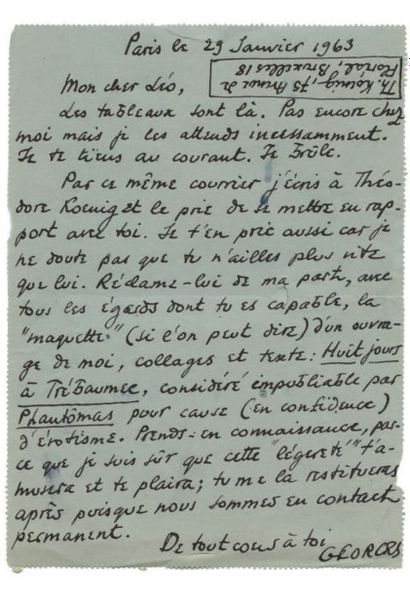 Paris le 29 Janvier 1963
Th. Koenig, 75 Avenue de
Floréal, Bruxelles 18
Mon cher Léo,
Les tableaux sont là. Pas encore chez
moi mais je les attends incessamment.
Je te tiens au courant. Je brûle.
Par ce même courrier j'écris à Théo-
dore Koenig et le prie de se mettre en rap-
port avec toi. Je t'en prie aussi car je
ne doute pas que tu n'ailles plus vite
que lui. Réclame-lui de ma part, avec
tous les égards dont tu es capable, la
"maquette" (si l'on peut dire) d'un ouvra-
ge de moi, collages et texte : Huit jours
à Trébaumec, considéré impubliable par
Phantômas pour cause (en confidence)
d'érotisme. Prends-en connaissance, par-
ce que je suis sûr que cette "légereté" t'a-
musera et te plaira ; tu me la restitueras
après puisque nous sommes en contact
permanent.
De tout coeur à toi
GEORGES